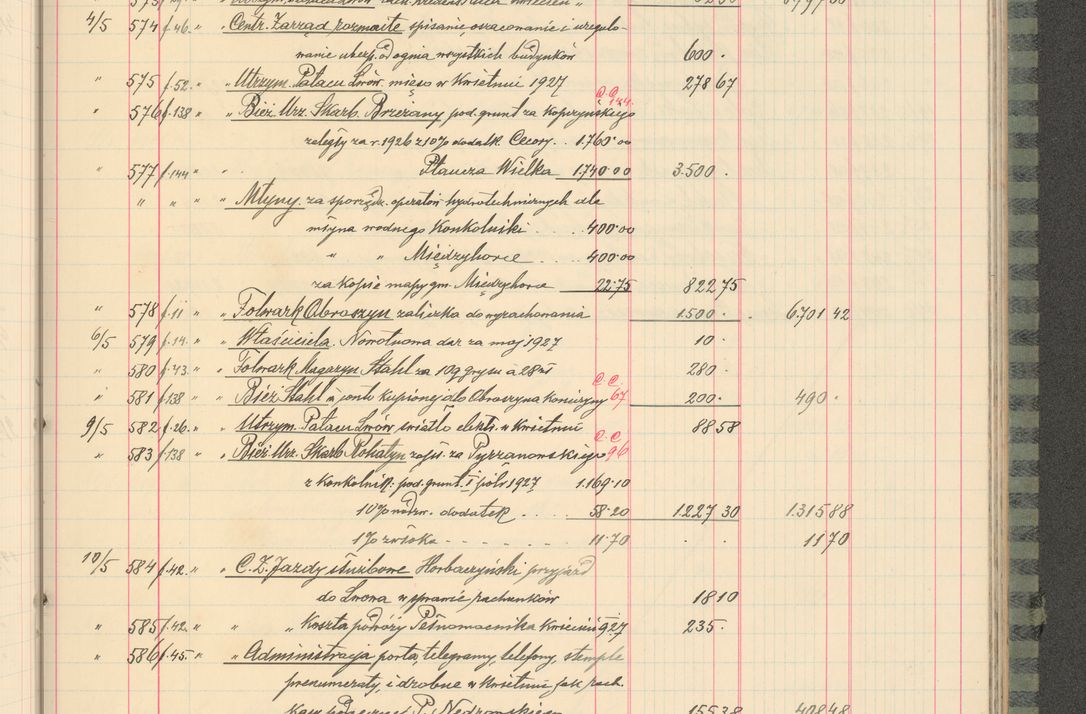 4/5 574 f.46. " " Centr. Zarząd rozmaite spisanie, oszacowanie i uregulo-
wanie ubezp. od ognia wszystkich budynków 600 ·
" 575 f.52. " " Utrzym. Pałacu Lwów. mięso w Kwietniu 1927 278 67
C.C. 144.
" 576 f.138 " " Bież. Urz. Skarb. Brzeżany pod. grunt za Kopczyńskiego
zaległy za r. 1926 z 10% dodatk. Cecory. . 1.760·00
" 577 f.144 " " . Płaucza Wielka 1.740·00 3.500 ·
" " " " Młyny. za sporządz. operatów hydrotechnicznych dla
młyna wodnego Konkolniki . . . . 400·00
" " Międzyhorce . . . . 400·00
za kopie mapy gm. Międzyhorce 22·75 822 75
" 578 f.11 " " Folwark Obroszyn zaliczka do wyrachowania 1.500 · . 6.701 42
6/5 579 f.14. " " Właściciela. Nowotwoma dar za maj 1927 10 ·
" 580 f.43. " " Folwark Magazyn Stahl za 10q grysu a 28 zł 280 ·
C.C.
" 581 f.138 " " Bież. Stahl a conto kupionej do Obroszyna koniczyny 67 200· 490 ·
9/5 582 f.26. " " Utrzym. Pałacu Lwów światło elektr. w Kwietniu 88 58
C.C.
" 583 f.138 " " Bież. Urz. Skarb. Rohatyn zajść. za Pyrzanowskiego 96
z Konkolnik: pod. grunt. I półr 1927 1.169·10
10% nadzw. dodatek . . . . 58·20 1.227 30 1.315 88
1% zwłoka . . . . . . . . 11·70 . . 11 70
10/5 584 f.42. " " C.Z. Jazdy służbowe Horbaczyński przyjazd
do Lwowa w sprawie rachunków 18 10
" 585 f.42. " " " Koszta podróży Pełnomocnika Kwiecień 927 235 ·
" 586 f.45. " " Administracja porta, telegramy, telefony, stemple
prenumeraty i drobne w kwietniu jak rach.
155 38 408 48